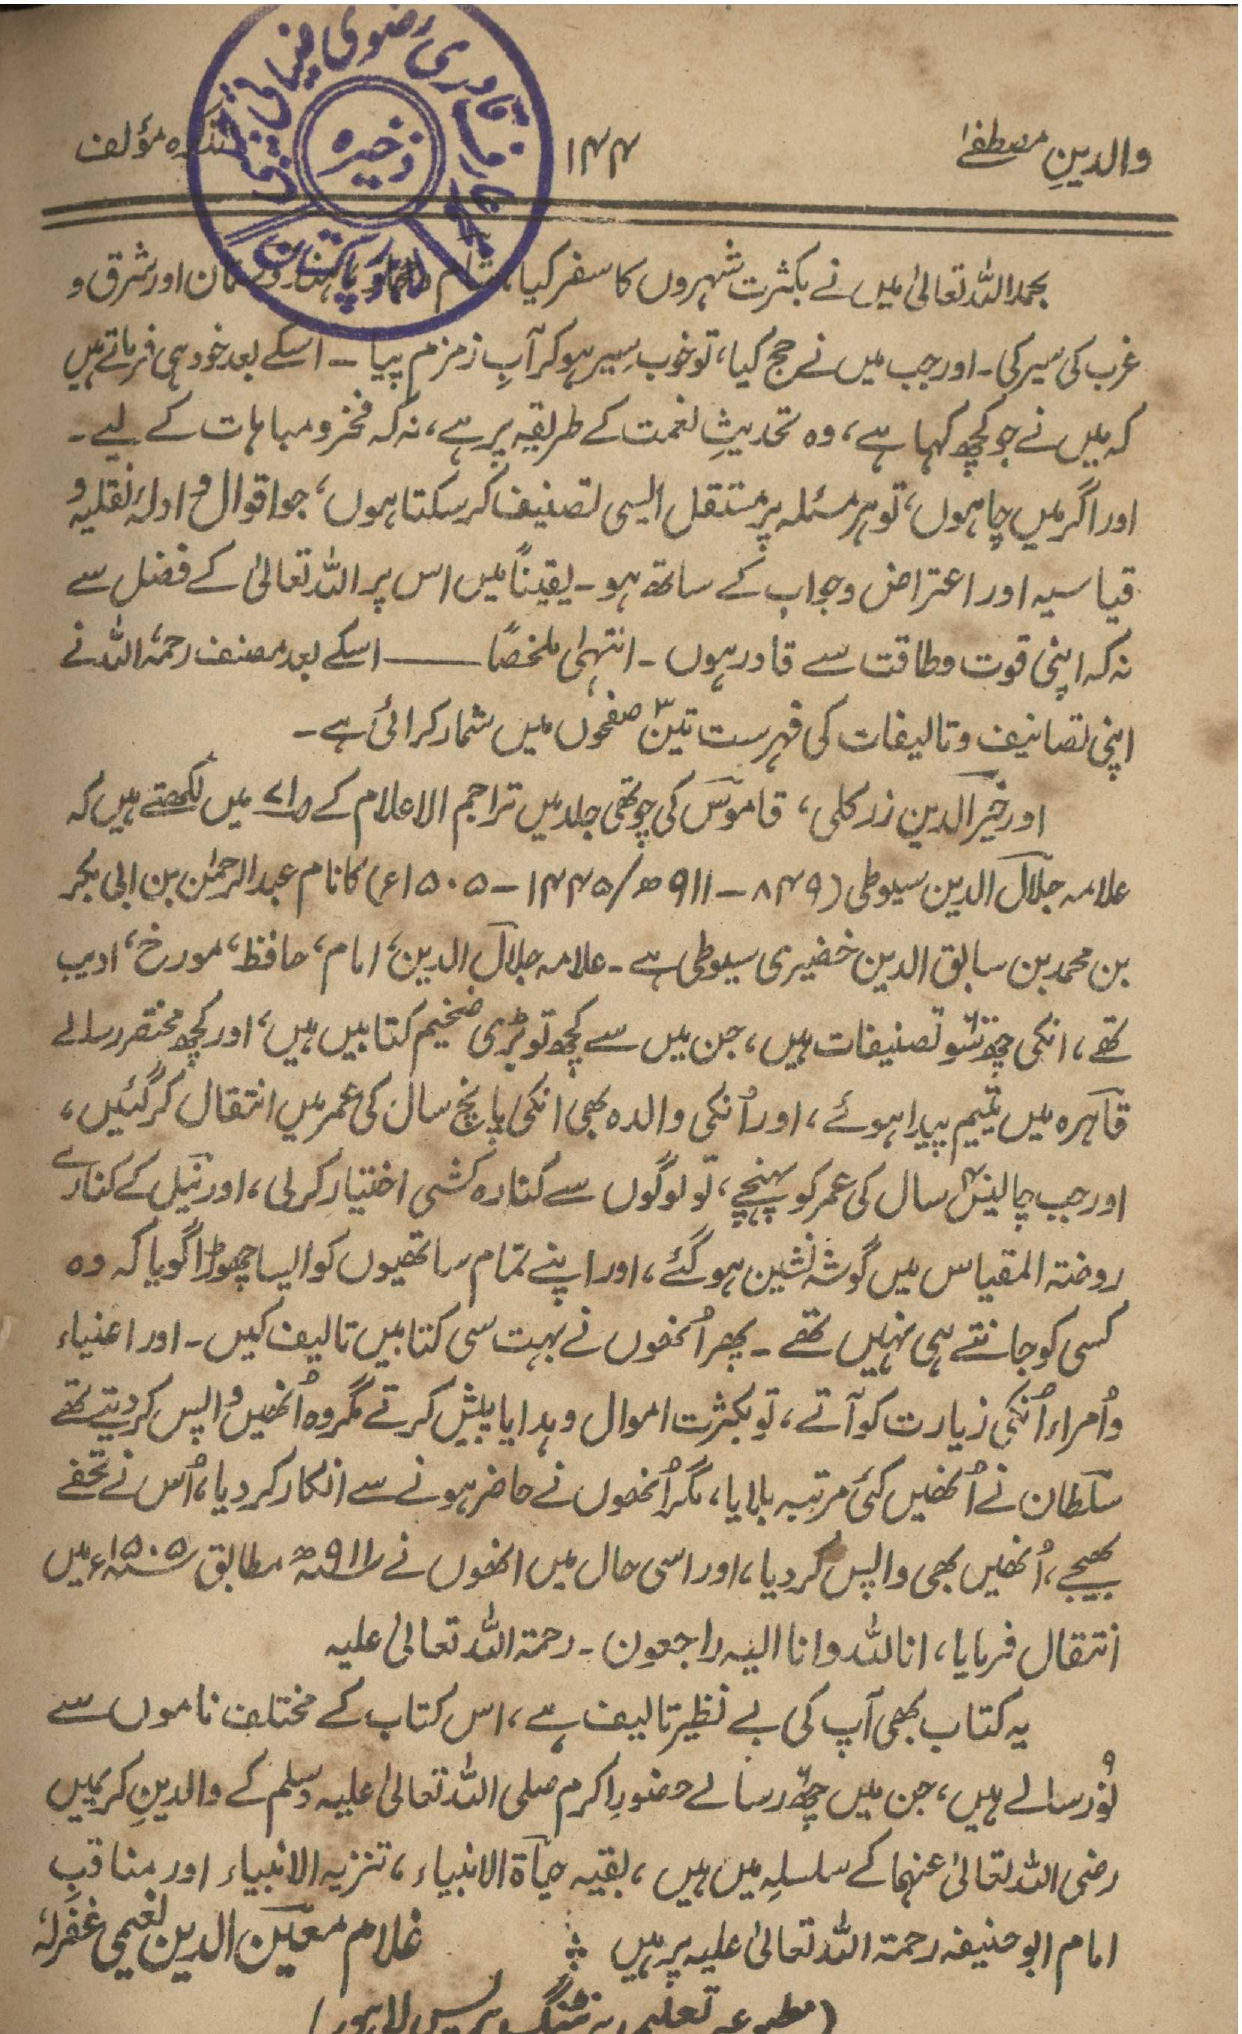 والدینِ مصطفےٰ ۱۴۴ تذکرہ مؤلف
ذخیرہ
بحمد اللہ تعالیٰ میں نے بکثرت شہروں کا سفر کیا، شام و حجاز یا ہندوستان اور شرق و
غرب کی سیر کی۔ اور جب میں نے حج کیا، تو خوب سِیر ہو کر آبِ زمزم پیا ۔ اسکے بعد خود ہی فرماتے ہیں
کہ میں نے جو کچھ کہا ہے، وہ تحدیثِ نعمت کے طریقہ پر ہے، نہ کہ فخر و مباہات کے لیے۔
اور اگر میں چاہوں، تو ہر مسئلہ پر مستقل ایسی تصنیف کر سکتا ہوں، جو اقوال و ادلۂ نقلیہ و
قیاسیہ اور اعتراض و جواب کے ساتھ ہو۔ یقیناً میں اس پر اللہ تعالیٰ کے فضل سے
نہ کہ اپنی قوت و طاقت سے قادر ہوں ۔ انتہٰی ملخصًا ـــــ اسکے بعد مصنف رحمۃ اللہ نے
اپنی تصانیف و تالیفات کی فہرست تین۳ صفحوں میں شمار کرائی ہے ۔
اور خیر الدین زرکلی، قاموس کی چوتھی جلد میں تراجم الاعلام کے ص۷۱ میں لکھتے ہیں کہ
علامہ جلال الدین سیوطی (۸۴۹ – ۹۱۱ھ/۱۴۴۵ – ۱۵۰۵ء) کا نام عبد الرحمٰن بن ابی بکر
بن محمد بن سابق الدین خضیری سیوطی ہے ۔ علامہ جلال الدین، امام، حافظ، مورخ، ادیب
تھے، انکی چھ سو تصنیفات ہیں، جن میں سے کچھ تو بڑی ضخیم کتابیں ہیں، اور کچھ مختصر رسالے
قاہرہ میں یتیم پیدا ہوئے، اور اُنکی والدہ بھی انکی پانچ سال کی عمر میں انتقال کر گئیں،
اور جب چالیس۴۰ سال کی عمر کو پہنچے، تو لوگوں سے کنارہ کشی اختیار کر لی، اور نیل کے کنارے
روضتہ المقیاس میں گوشہ نشین ہو گئے، اور اپنے تمام ساتھیوں کو ایسا چھوڑا گویا کہ وہ
کسی کو جانتے ہی نہیں تھے ۔ پھر اُنھوں نے بہت سی کتابیں تالیف کیں ۔ اور اغنیاء
و اُمراء اُنکی زیارت کو آتے، تو بکثرت اموال و ہدایا پیش کرتے مگر وہ اُنھیں واپس کر دیتے تھے
سلطان نے اُنھیں کئی مرتبہ بلایا، مگر اُنھوں نے حاضر ہونے سے انکار کر دیا، اُس نے تحفے
بھیجے، اُنھیں بھی واپس کر دیا، اور اسی حال میں انھوں نے ۹۱۱ھ مطابق ۱۵۰۵ء میں
انتقال فرمایا، انا للہ وانا الیہ راجعون ۔ رحمۃ اللہ تعالیٰ علیہ
یہ کتاب بھی آپ کی بے نظیر تالیف ہے، اس کتاب کے مختلف ناموں سے
نو۹ رسالے ہیں، جن میں چھ رسالے حضورِ اکرم صلی اللہ تعالیٰ علیہ وسلم کے والدینِ کریمین
رضی اللہ تعالیٰ عنہما کے سلسلہ میں ہیں، بقیہ حیاۃ الانبیاء، تنزیہ الانبیاء اور مناقبِ
امام ابو حنیفہ رحمۃ اللہ تعالیٰ علیہ پر ہیں غلام معین الدین نعیمی غفرلہٗ
(مطبوعہ تعلیمی پرنٹنگ پریس لاہور)